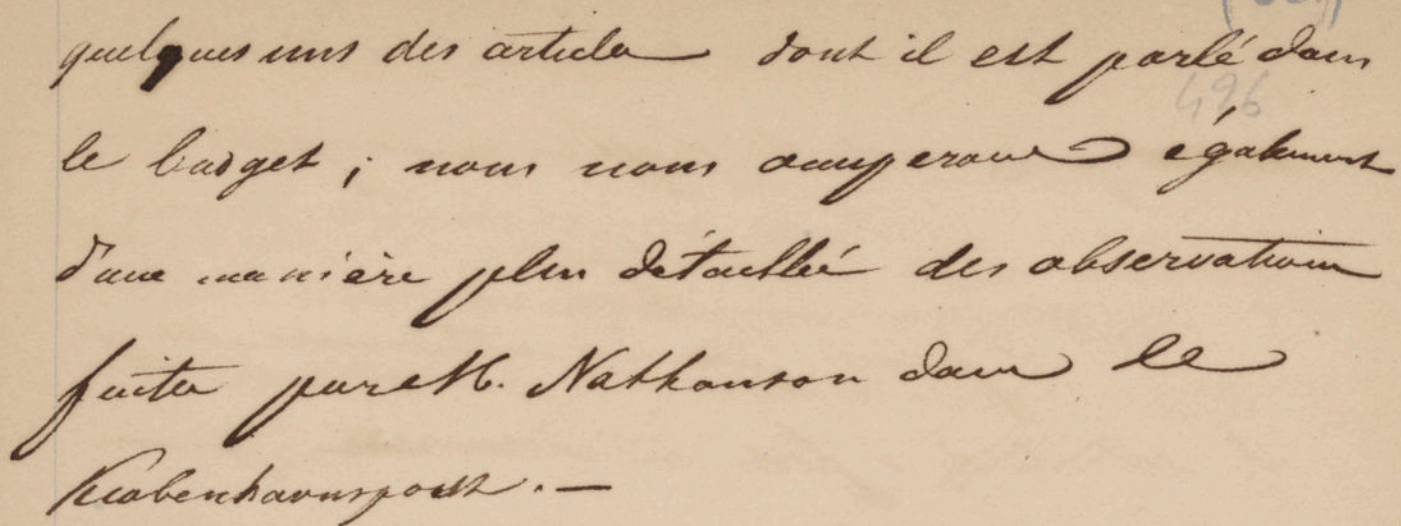 quelques uns des articles dont il est parlé dans
496
le budget ; nous nous occuperons également
d'une manière plus détaillée des observations
faites par M. Nathanson dans le
Kiobenhavnspost. —